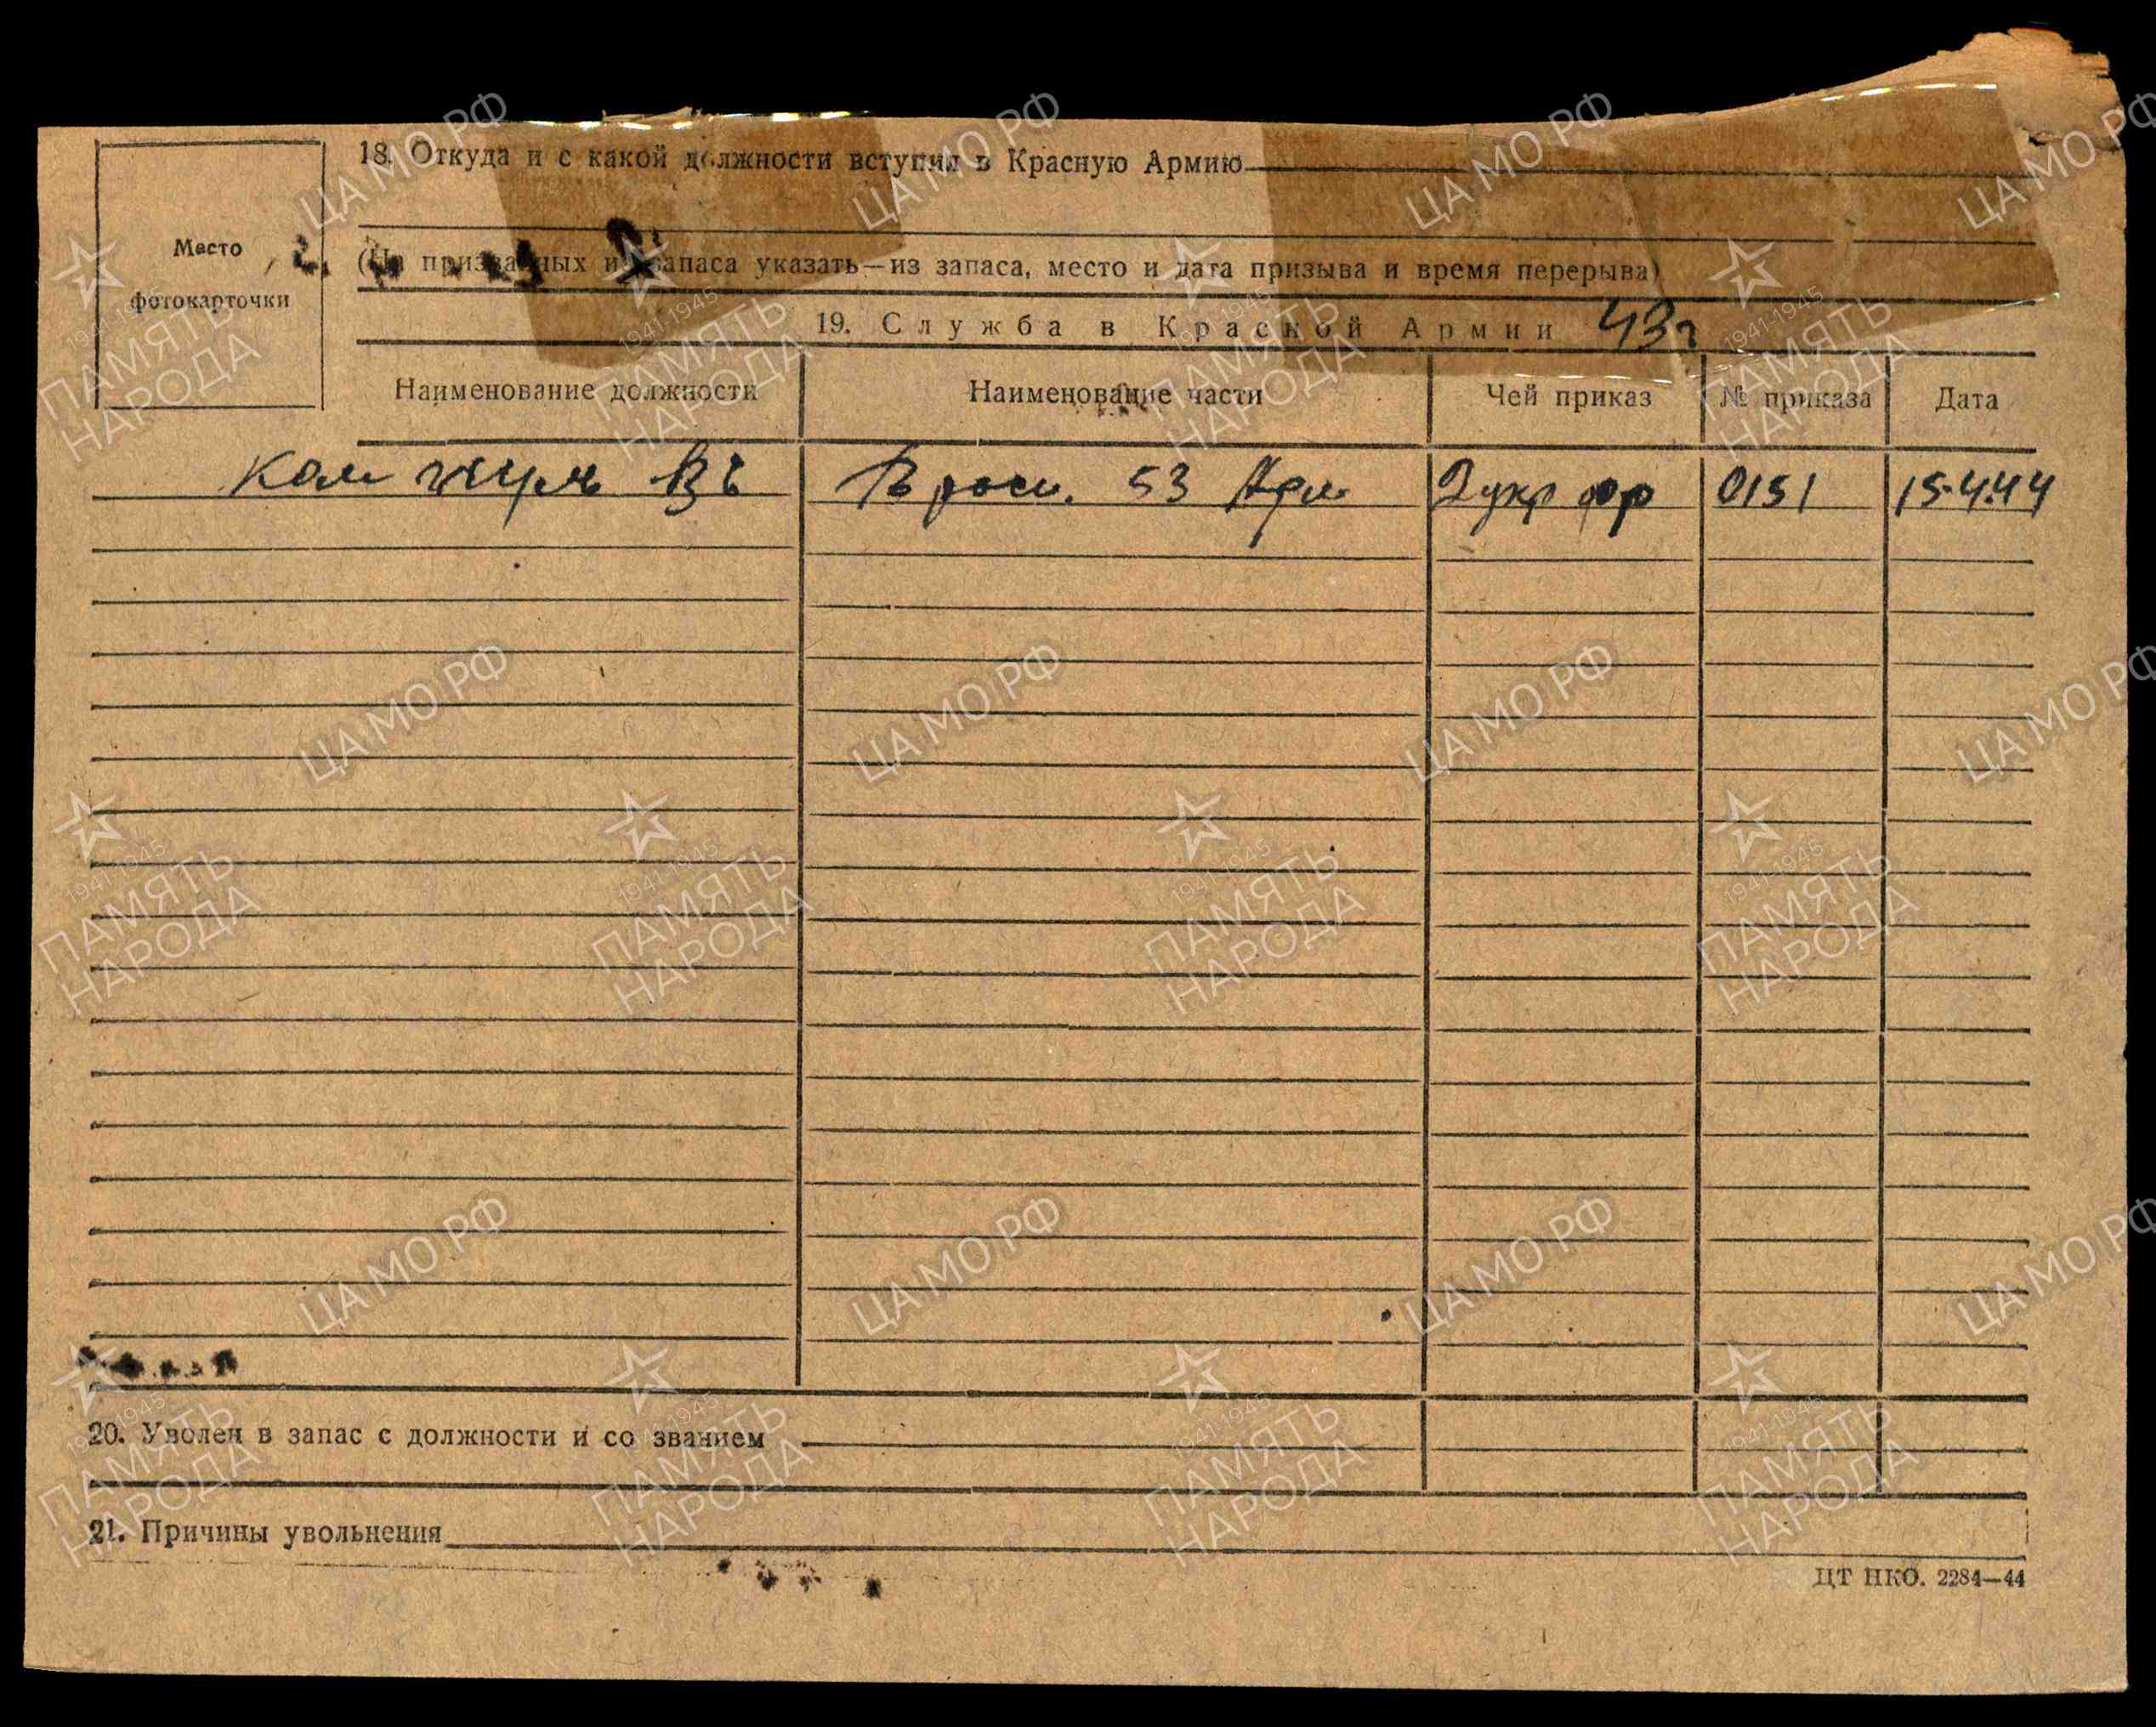 18. Откуда и с какой должности вступил в Красную Армию
Место
фотокарточки
(На призванных из запаса указать—из запаса, место и дата призыва и время перерыва)
19. Служба в Красной Армии 43г
Наименование должности Наименование части Чей приказ № приказа Дата
Ком В расп. 53 Арм 2 укр фр 0151 15.4.44
20. Уволен в запас с должности и со званием
21. Причины увольнения
ЦТ НКО. 2284—44
ЦА МО РФ
1941-1945
ПАМЯТЬ
НАРОДА